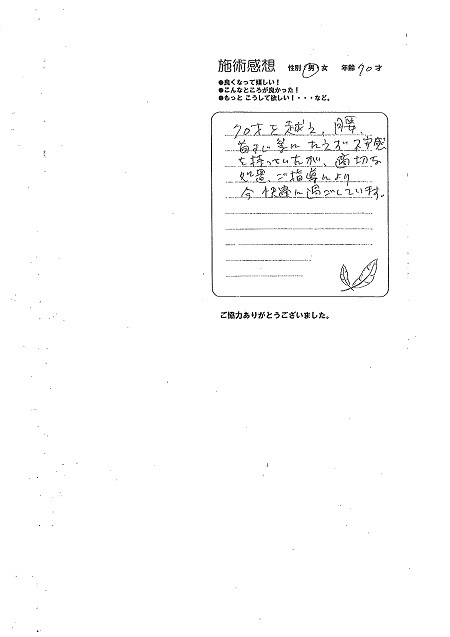 施術感想 性別 男 女 年齢 70才
●良くなって嬉しい！
●こんなところが良かった！
●もっと こうして欲しい！・・・など。
70才を越え、腰、
首すじ等にたえず不安感
を持っていたが、適切な
処置、ご指導により
今 快適に過ごしています。
ご協力ありがとうございました。